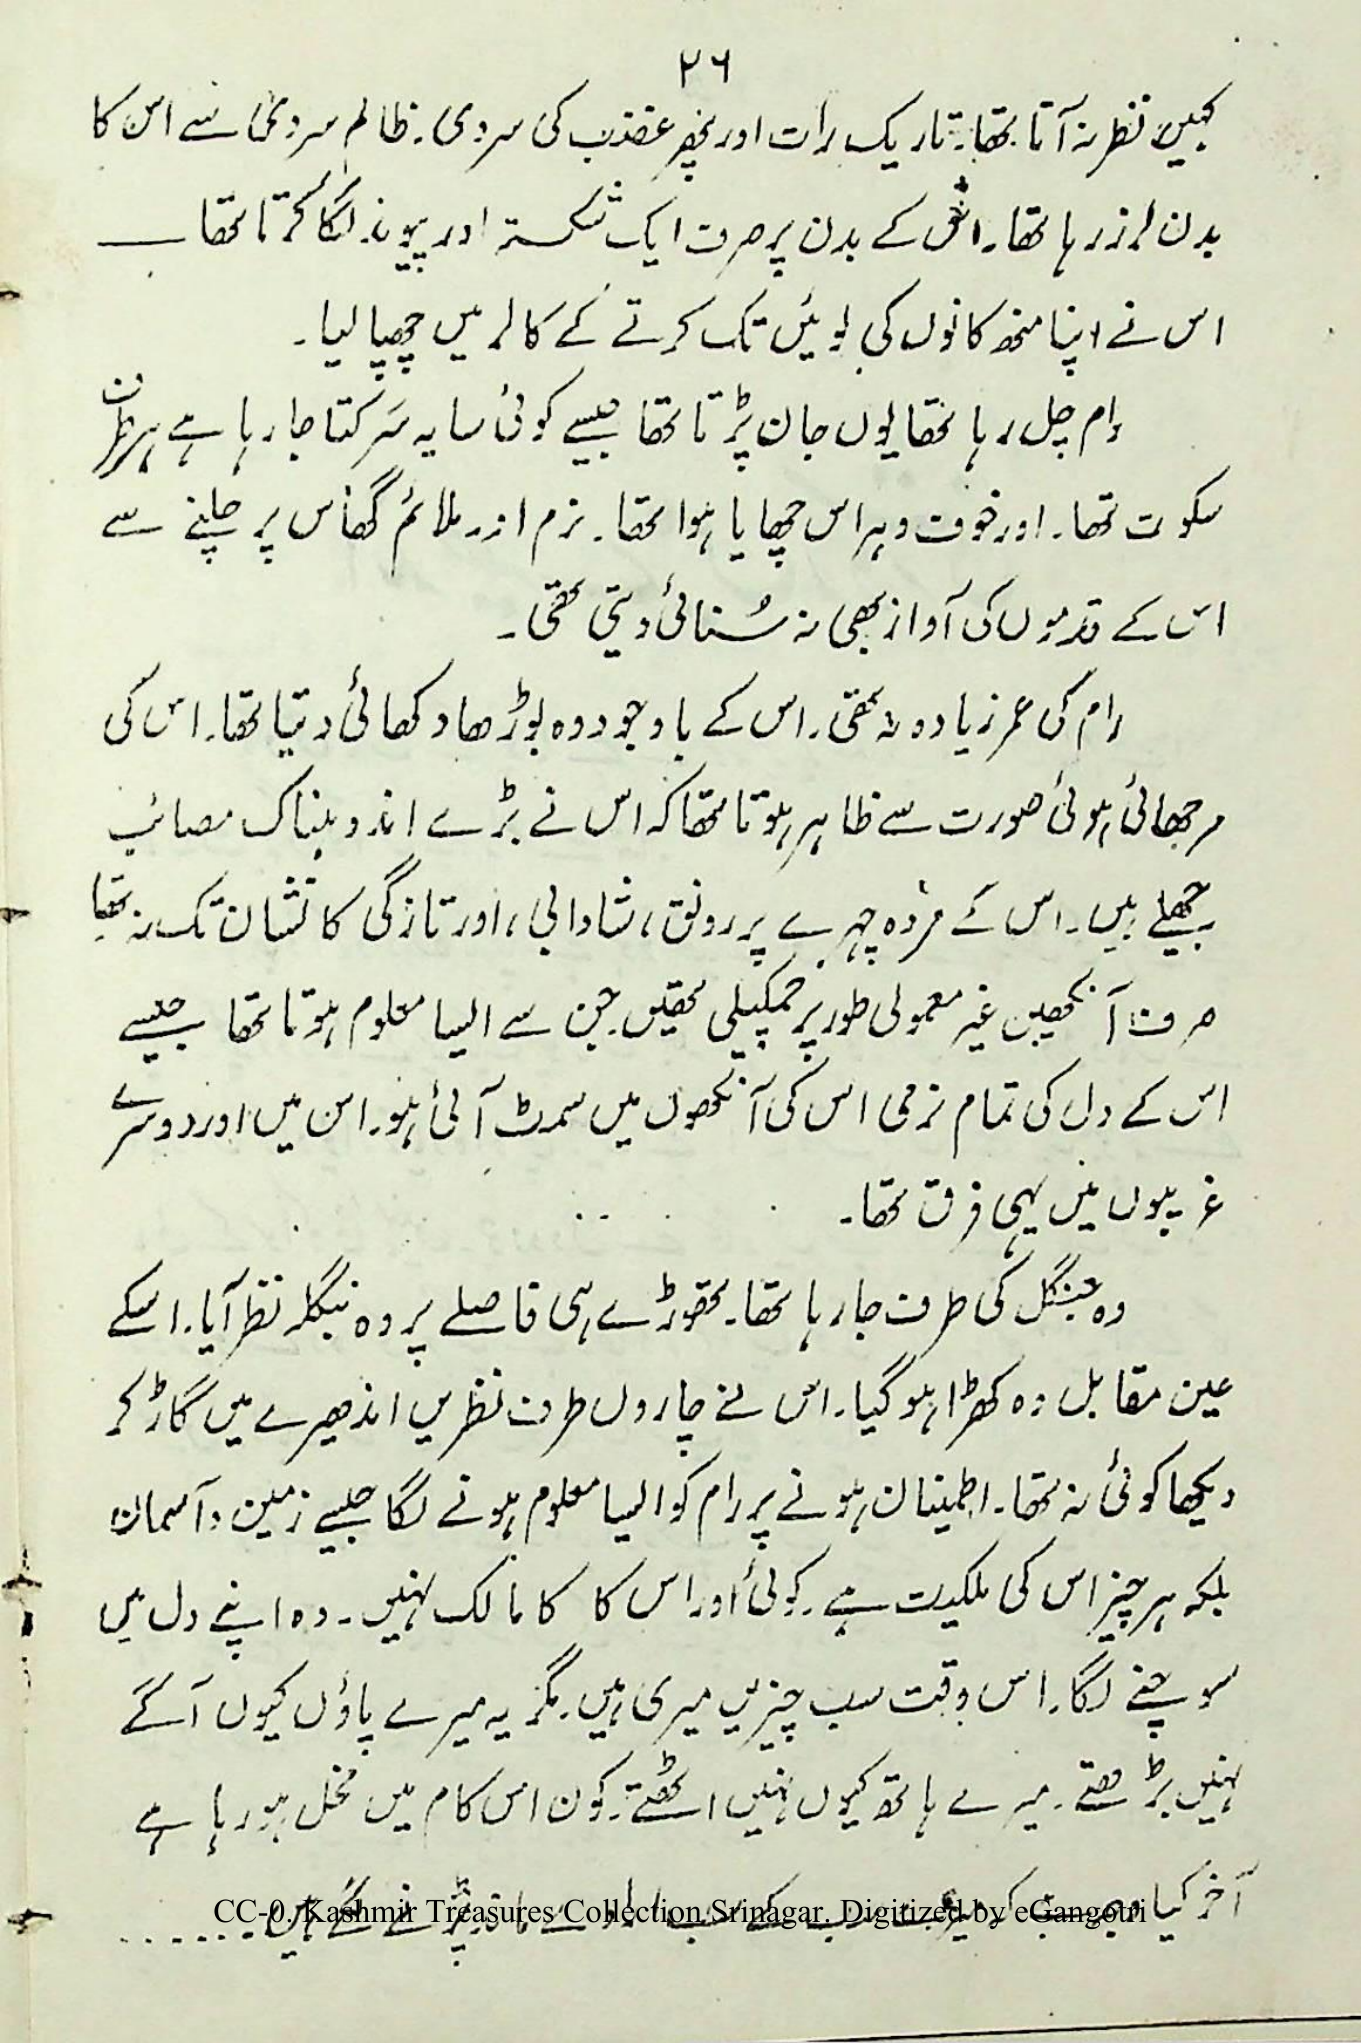 ۲۶
کہیں نظر نہ آتا تھا۔ تاریک رات اور پھر غضب کی سردی۔ ظالم سردی سے اس کا
بدن لرز رہا تھا۔ اس کے بدن پر صرف ایک شکستہ اور پیوند لگا کرتا تھا ــــ
اس نے اپنا منھ کانوں کی لوئیں تک کرتے کے کالر میں چھپا لیا۔
رام چل رہا تھا یوں جان پڑتا تھا جیسے کوئی سایہ سَرکتا جا رہا ہے ہر طرف
سکوت تھا۔ اور خوف و ہراس چھایا ہوا تھا۔ نرم اور ملائم گھاس پر چلنے سے
اس کے قدموں کی آواز بھی نہ سُنائی دیتی تھی۔
رام کی عمر زیادہ نہ تھی۔ اس کے باوجود وہ بوڑھا دکھائی دیتا تھا۔ اس کی
مرجھائی ہوئی صورت سے ظاہر ہوتا تھا کہ اس نے بڑے اندوہناک مصائب
جھیلے ہیں۔ اس کے مردہ چہرے پر رونق، شادابی، اور تازگی کا نشان تک نہ تھا
صرف آنکھیں غیر معمولی طور پر چمکیلی تھیں۔ جن سے ایسا معلوم ہوتا تھا جیسے
اس کے دل کی تمام نرمی اس کی آنکھوں میں سمٹ آئی ہو۔ اس میں اور دوسرے
غریبوں میں یہی فرق تھا۔
وہ جنگل کی طرف جا رہا تھا۔ تھوڑے ہی فاصلے پر وہ بنگلہ نظر آیا۔ اسکے
عین مقابل وہ کھڑا ہو گیا۔ اس نے چاروں طرف نظریں اندھیرے میں گاڑ کر
دیکھا کوئی نہ تھا۔ اطمینان ہونے پر رام کو ایسا معلوم ہونے لگا جیسے زمین و آسمان
بلکہ ہر چیز اس کی ملکیت ہے۔ کوئی اور اس کا کا مالک نہیں۔ وہ اپنے دل میں
سوچنے لگا۔ اس وقت سب چیزیں میری ہیں۔ مگر یہ میرے پاؤں کیوں آگے
نہیں بڑھتے۔ میرے ہاتھ کیوں نہیں اٹھتے۔ کون اس کام میں مخل ہو رہا ہے
آخر کیا
CC-0. Kashmir Treasures Collection Srinagar. Digitized by eGangotri